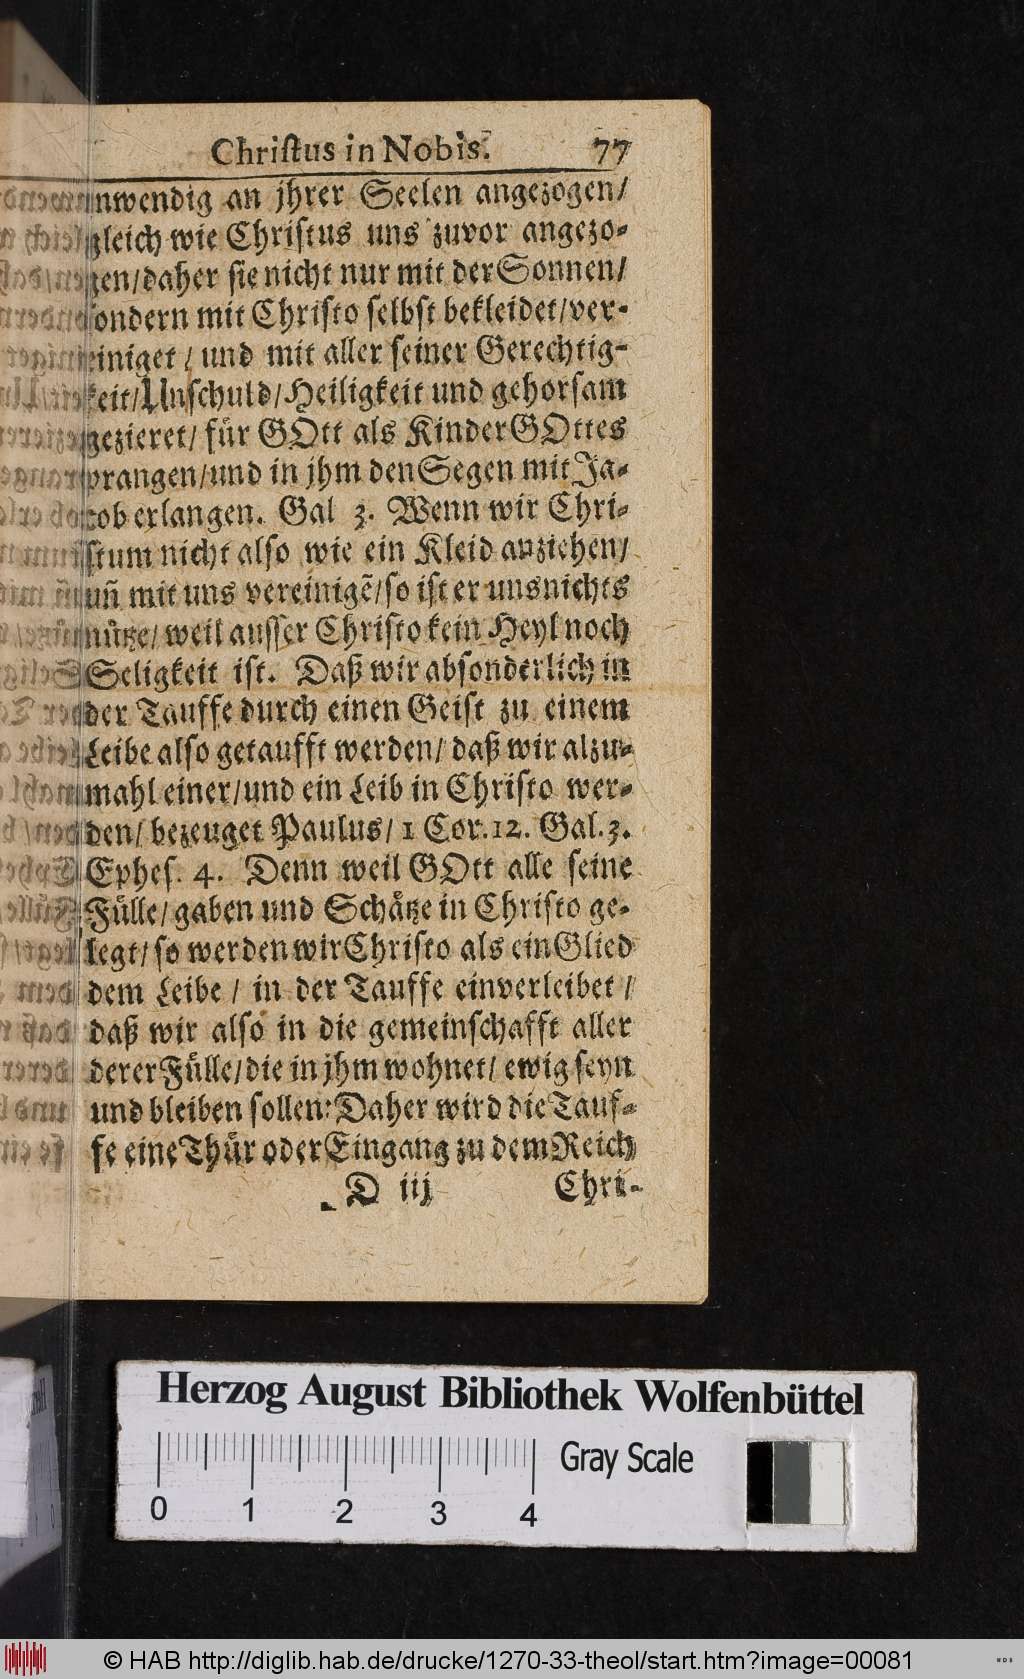 Christus in Nobis. 77
inwendig an jhrer Seelen angezogen/
gleich wie Christus uns zuvor angezo-
gen/daher sie nicht nur mit der Sonnen/
sondern mit Christo selbst bekleidet/ver-
einiget / und mit aller seiner Gerechtig-
keit/Unschuld/Heiligkeit und gehorsam
gezieret/ für GOtt als Kinder GOttes
prangen/und in jhm den Segen mit Ja-
cob erlangen. Gal 3. Wenn wir Chri-
stum nicht also wie ein Kleid anziehen/
uñ mit uns vereinigẽ/so ist er uns nichts
nütze/ weil ausser Christo kein Heyl noch
Seligkeit ist. Daß wir absonderlich in
der Tauffe durch einen Geist zu einem
Leibe also getaufft werden/ daß wir alzu-
mahl einer/und ein Leib in Christo wer-
den/ bezeuget Paulus/ 1 Cor. 12. Gal. 3.
Ephes. 4. Denn weil GOtt alle seine
Fülle/ gaben und Schätze in Christo ge-
legt/ so werden wir Christo als ein Glied
dem Leibe / in der Tauffe einverleibet /
daß wir also in die gemeinschafft aller
derer Fülle/die in jhm wohnet/ ewig seyn
und bleiben sollen: Daher wird die Tauf-
fe eine Thür oder Eingang zu dem Reich
D iij Chri-
Herzog August Bibliothek Wolfenbüttel
Gray Scale
0 1 2 3 4
© HAB http://diglib.hab.de/drucke/1270-33-theol/start.htm?image=00081